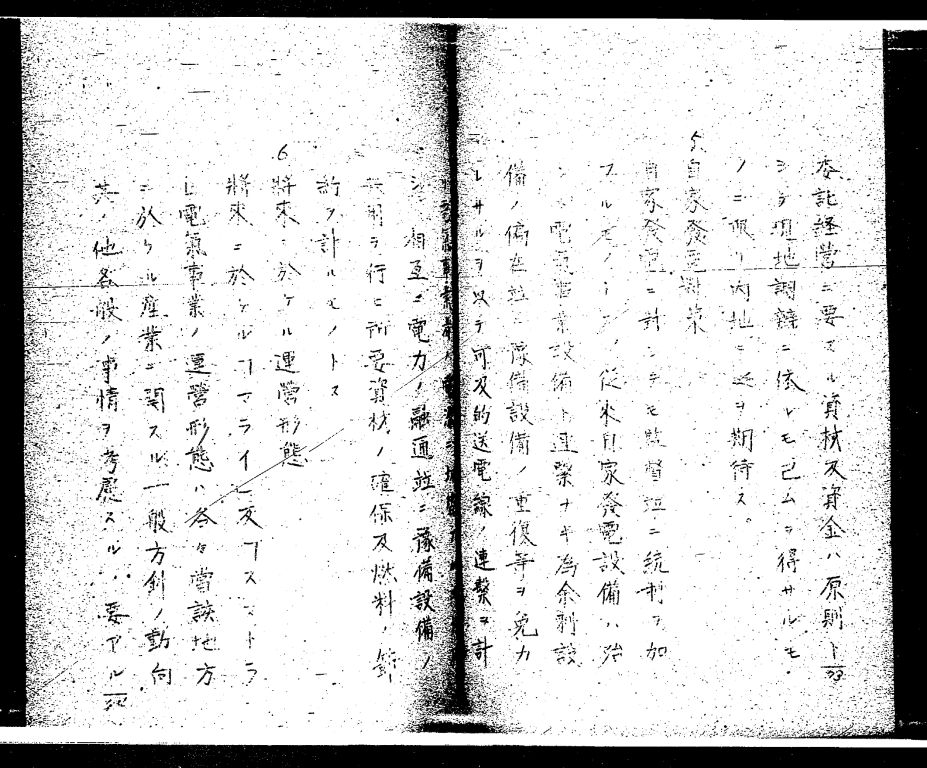 委託経営ニ要スル資材及資金ハ原則ト
シテ現地調辨ニ依レモ已ムヲ得サルモ
ノニ限リ内地ニ之ヲ期待ス。
5. 自家發電對策
自家發電ニ計シテモ監督竝ニ統制ヲ加
フルモノトス、従来自家發電設備ハ殆
電氣事業設備ト連繫ナキ為余剰設
備ノ偏在竝ニ豫備設備ノ重復等ヲ免カ
レサルヲ以テ可及的送電線ノ連繫ヲ計
相互ニ電力ノ融通竝ニ豫備設備ノ
共用ヲ行ヒ所要資材ノ確保及燃料ノ節
約ヲ計ルモノトス
6 將來ニ於ケル運營形態
將來ニ於ケル
電氣事業ノ運營形態ハ各々當該地方
ニ於ケル産業ニ関スル一般方針ノ動向
其ノ他各般ノ事情ヲ考慮スルノ要アル